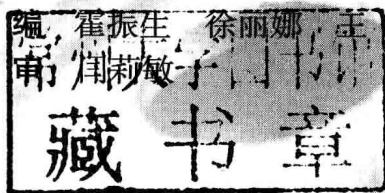 编 霍振生 徐丽娜 王
审 闫莉敏
藏书章